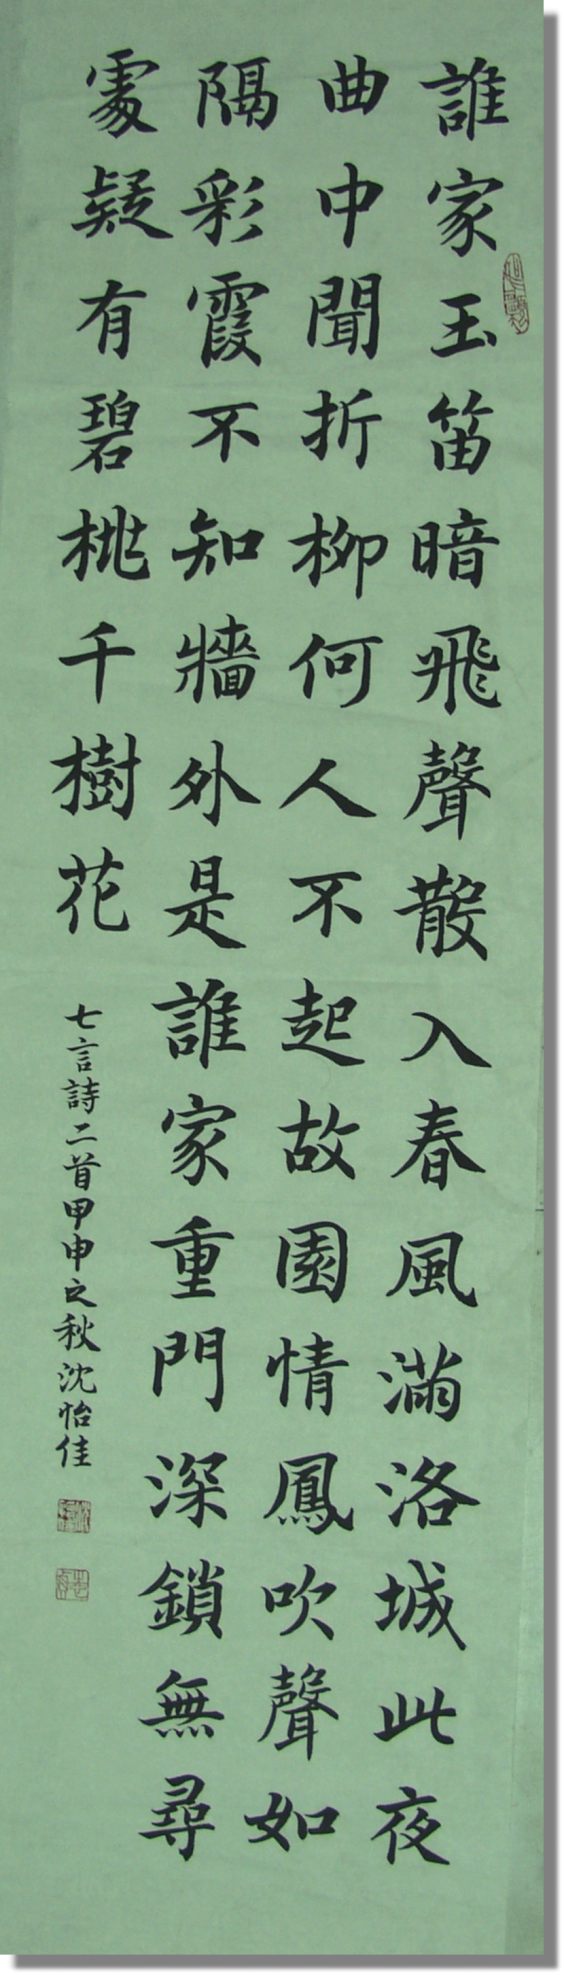 誰家玉笛暗飛聲散入春風滿洛城此夜
曲中聞折柳何人不起故園情鳳吹聲如
隔彩霞不知牆外是誰家重門深鎖無尋
處疑有碧桃千樹花
七言詩二首甲申之秋沈怡佳